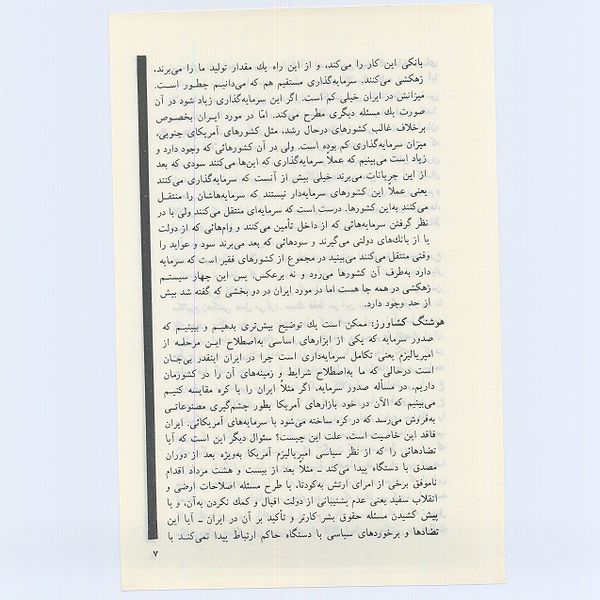 بانکی این کار را می‌کند، و از این راه یك مقدار تولید ما را می‌برند.
زهکشی می‌کنند. سرمایه‌گذاری مستقیم هم که می‌دانیم چطور است.
میزانش در ایران خیلی کم است. اگر این سرمایه‌گذاری زیاد شود در آن
صورت یك مسئله دیگری مطرح می‌کند. اما در مورد ایران بخصوص
برخلاف غالب کشورهای درحال رشد، مثل کشورهای آمریکای جنوبی،
میزان سرمایه‌گذاری کم بوده است. ولی در آن کشورهائی که وجود دارد و
زیاد است می‌بینیم که عملاً سرمایه‌گذاری که این‌ها می‌کنند سودی که بعد
از این جریانات می‌برند خیلی بیش از آنست که سرمایه‌گذاری می‌کنند
یعنی عملاً این کشورهای سرمایه‌دار نیستند که سرمایه‌هاشان را منتقل
می‌کنند به‌این کشورها. درست است که سرمایه‌ای منتقل می‌کنند ولی با در
نظر گرفتن سرمایه‌هائی که از داخل تأمین می‌کنند و وام‌هائی که از دولت
یا از بانك‌های دولتی می‌گیرند و سودهائی که بعد می‌برند سود و عواید را
وقتی منتقل می‌کنند می‌بینید در مجموع از کشورهای فقیر است که سرمایه
دارد به‌طرف آن کشورها می‌رود و نه برعکس. پس این چهار سیستم
زهکشی در همه جا هست اما در مورد ایران در دو بخشی که گفته شد بیش
از حد وجود دارد.
هوشنگ کشاورز: ممکن است یك توضیح بیش‌تری بدهیم و ببینیم که
صدور سرمایه که یکی از ابزارهای اساسی به‌اصطلاح این مرحله از
امپریالیزم یعنی تکامل سرمایه‌داری است چرا در ایران اینقدر بی‌جان
است درحالی که ما به‌اصطلاح شرایط و زمینه‌های آن را در کشورمان
داریم. در مسأله صدور سرمایه، اگر مثلاً ایران را با کره مقایسه کنیم
می‌بینیم که الآن در خود بازارهای آمریکا بطور چشم‌گیری مصنوعاتی
به‌فروش می‌رسد که در کره ساخته می‌شود با سرمایه‌های آمریکائی. ایران
فاقد این خاصیت است، علت این چیست؟ سئوال دیگر این است که آیا
تضادهائی را که از نظر سیاسی امپریالیزم آمریکا به‌ویژه بعد از دوران
مصدق با دستگاه پیدا می‌کند ـ مثلاً بعد از بیست و هشت مرداد اقدام
ناموفق برخی از امرای ارتش به‌کودتا، یا طرح مسئله اصلاحات ارضی و
انقلاب سفید یعنی عدم پشتیبانی از دولت اقبال و کمك نکردن به‌آن، و یا
پیش کشیدن مسئله حقوق بشر کارتر و تأکید بر آن در ایران ـ آیا این
تضادها و برخوردهای سیاسی با دستگاه حاکم ارتباط پیدا نمی‌کند با
۷